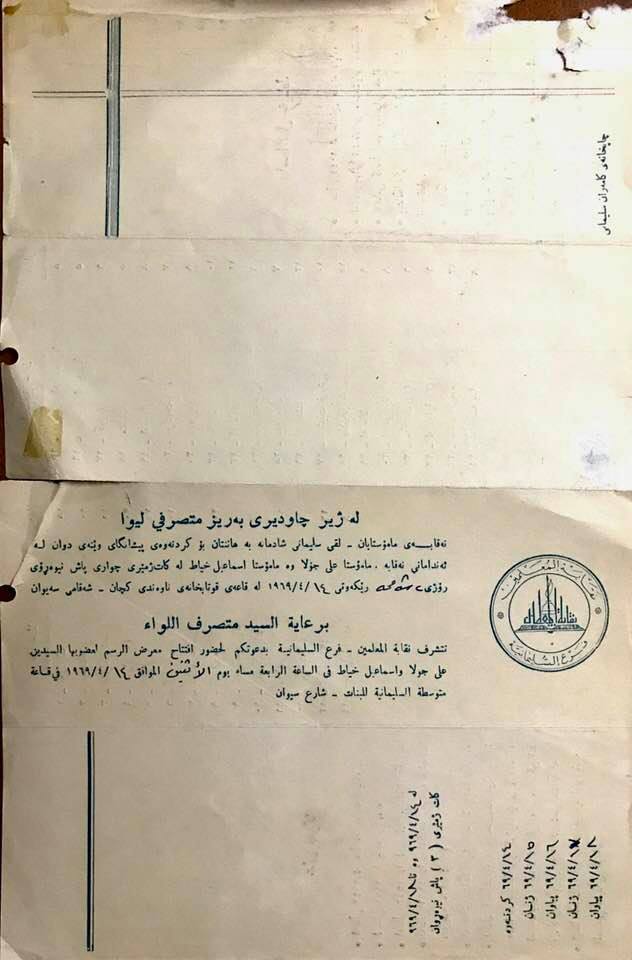 چاپخانەی کامەران سلیمانی
لە ژیر چاودیری بەریز متصرفي لیوا
نەقابەی مامۆستایان - لقی سلیمانی شادمانە بە هاتنتان بۆ کردنەوەی پیشانگای وێنەی دوان لە
ئەندامانی نەقابە . مامۆستا علی جۆلا وە مامۆستا اسماعیل خیاط لە کات‌ژمێری چواری پاش نیوەڕۆی
رۆژی رێکەوتی ١٩٦٩/٤/١٤ لە قاعەی قوتابخانەی ناوەندی کچان - شەقامی سەیوان
برعاية السيد متصرف اللواء
تتشرف نقابة المعلمين - فرع السليمانية بدعوتكم لحضور افتتاح معرض الرسم لعضويها السيدين
علي جولا واسماعيل خياط في الساعة الرابعة مساء يوم الأثنين الموافق ١٩٦٩/٤/١٤ في قاعة
متوسطة السليمانية للبنات - شارع سيوان
نقابة المعلمين
فرع السليمانية
لە ٩٦٩/٤/١٤ وە تا ٩٦٩/٤/١٨
کات ژمێری ( ٣ ) پاش نیوەڕوان
٦٩/٤/١٤ کردنەوە
٦٩/٤/١٥ ژنان
٦٩/٤/١٦ پیاوان
٦٩/٤/١٧ ژنان
٦٩/٤/١٨ پیاوان